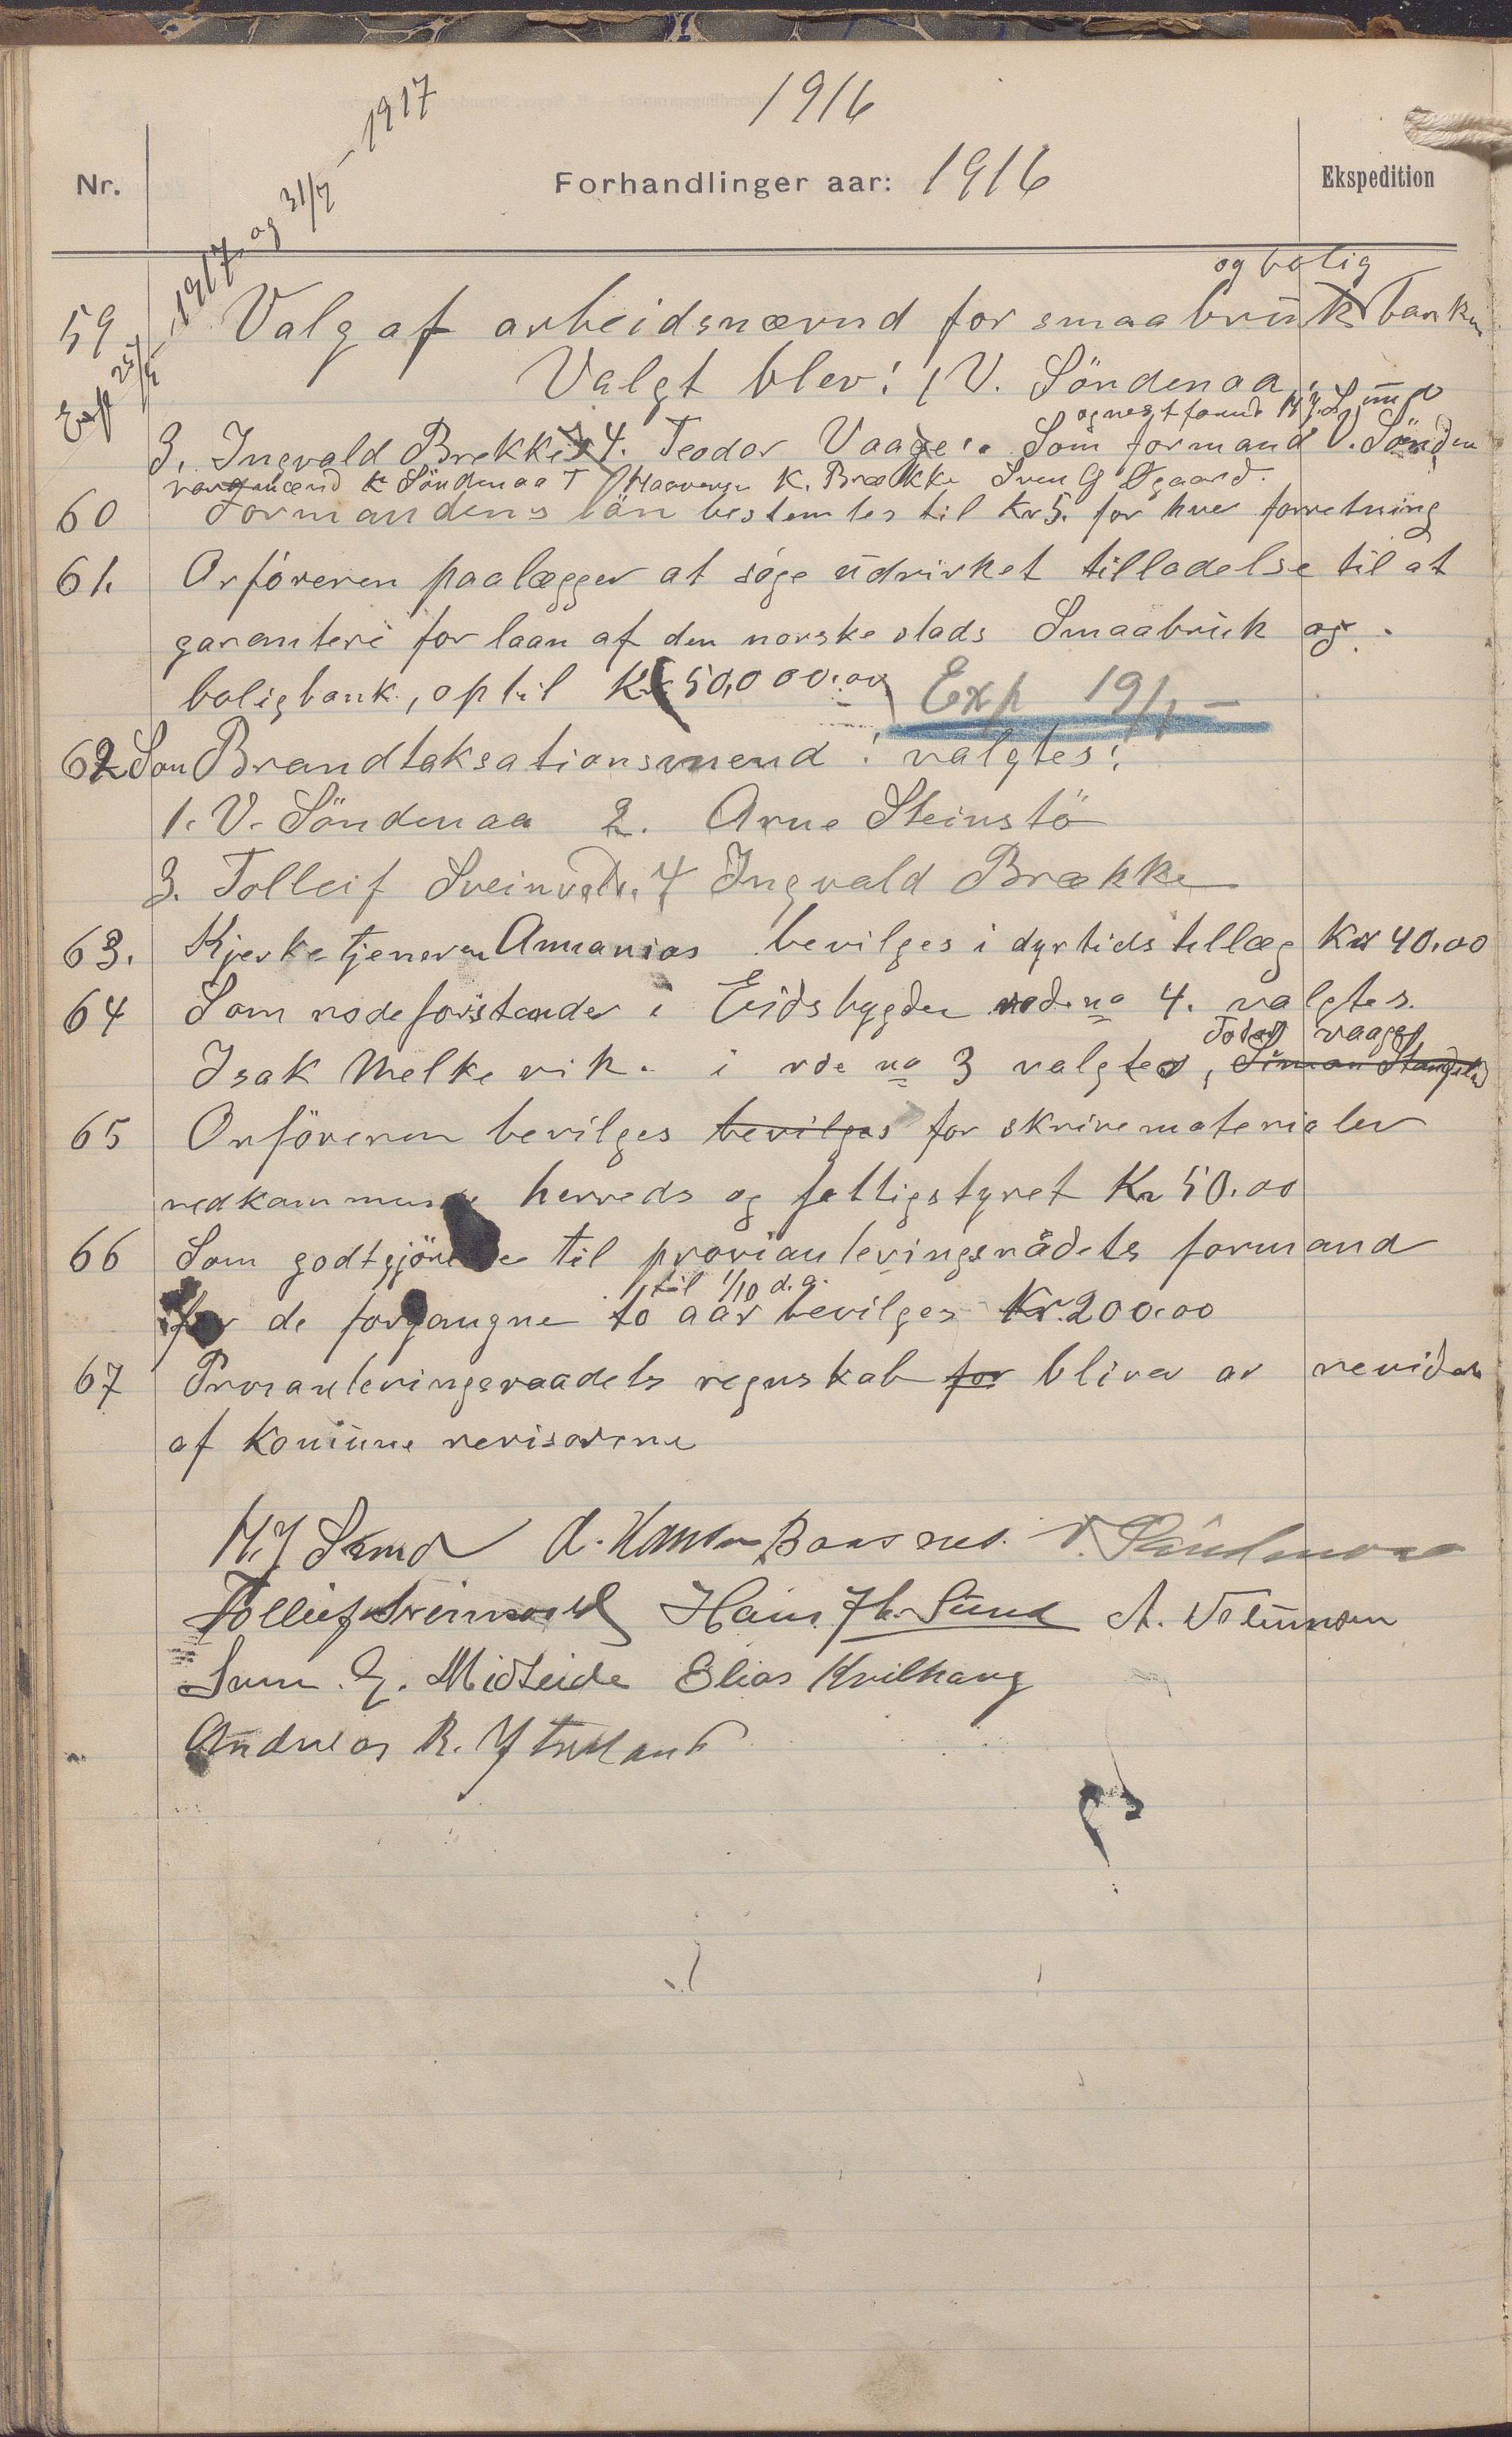 1916
Nr.
Forhandlinger aar: 1916
Ekspedition
Exp 25/5 – 1917 og 31/7 – 1917
og bolig
59 Valg af arbeidsnævnd for smaabruk banken
Valgt blev: 1 V. Söndenaa, 2. H. J. Sund
og nestformd
3. Ingvald Brekke 4. Teodor Vaage. Som formand V. Sönden
varamænd K Söndenaa T Haavarsen K. Brække Sven G Øgaard.
60 Formandens lön bestemtes til Kr 5. for hver forretning
61. Orføreren paalægger at søge udvirket tilladelse til at
garanteri for laan af den norske stads Smaabruk og
boligbank, optil Kr 50,000.00 Exp 19/1 –
62 Som Brandtaksationsmend : valgtes:
1. V. Söndenaa 2. Arne Steinstö
3. Tolleif Sveinvold. 4 Ingvald Brække
63. Kjerketjeneren Annanias bevilges i dyrtidstillæg Kr 40.00
64 Som rodeforstander i Eidsbygden rode no 4. valgtes.
Todor vaage
Isak Melkevik. i rde no 3 valgtes, Simon Stangeland
65 Orföreren bevilges bevilges for skrivematerialer
vedkommende herreds og fattigstyret Kr 50.00
66 Som godtgjörelse til provianteringsrådets formand
til 1/10 d.a.
for de forgangne to aar bevilges Kr. 200.00
67 Provianteringsraadets regnskab for bliver av revidert
af Komune revisorerne
H. J Sund A. Hansen Baasnes. V. Söndenaa
Tolleif Sveinvold Hans Th. Sund A. Valentinsen
Sven G. Midteide Elias Kvilhaug
Andreas R. Ytreland